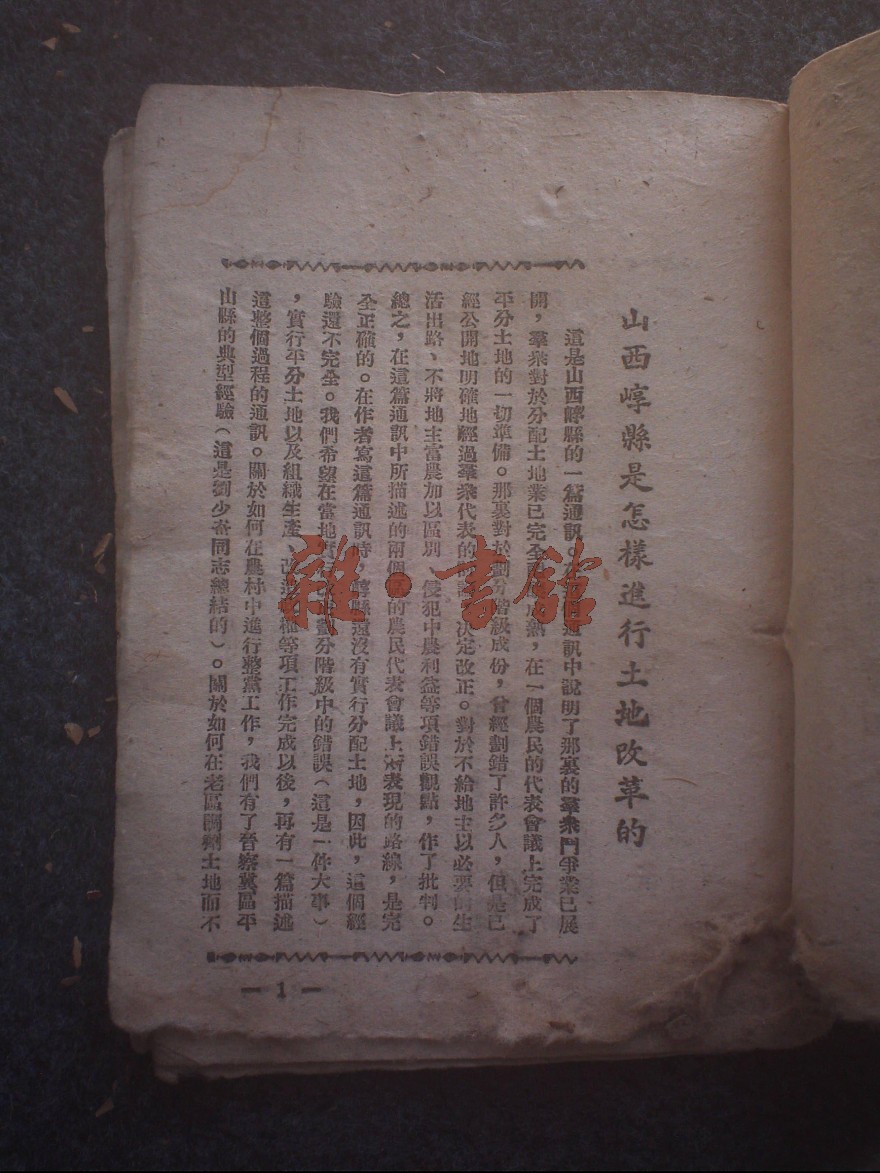 山西崞縣是怎樣進行土地改革的
這是山西崞縣的一篇通訊。在這個通訊中說明了那裏的羣衆鬥爭業已展
開，羣衆對於分配土地業已完全成熟，在一個農民的代表會議上完成了
平分土地的一切準備。那裏對於劃分階級成份，曾經劃錯了許多人，但是已
經公開地明確地經過羣衆代表的決定改正。對於不給地主以必要的生
活出路、不將地主富農加以區別、侵犯中農利益等項錯誤觀點，作了批判。
總之，在這篇通訊中所描述的兩個區的農民代表會議上所表現的路線，是完
全正確的。在作者寫這篇通訊時，崞縣還沒有實行分配土地，因此，這個經
驗還不完全。我們希望在當地實分階級中的錯誤（這是一件大事）
，實行平分土地以及組織生產、改等項工作完成以後，再有一篇描述
這整個過程的通訊。關於如何在農村中進行整黨工作，我們有了晉察冀區平
山縣的典型經驗（這是劉少奇同志總結的）。關於如何在老區調劑土地而不
— 1 —
雜·書館